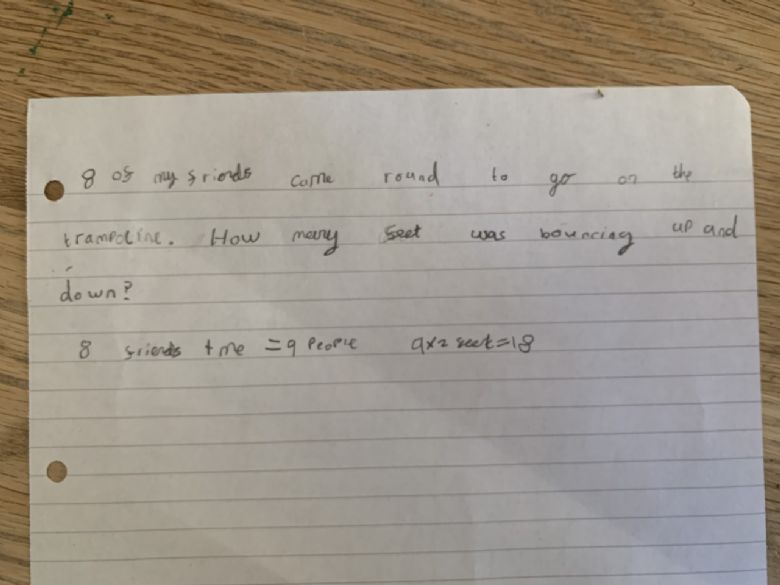 8 of my friends came round to go on the
trampoline. How many feet was bouncing up and
down?
8 friends + me = 9 people 9x2 feet = 18